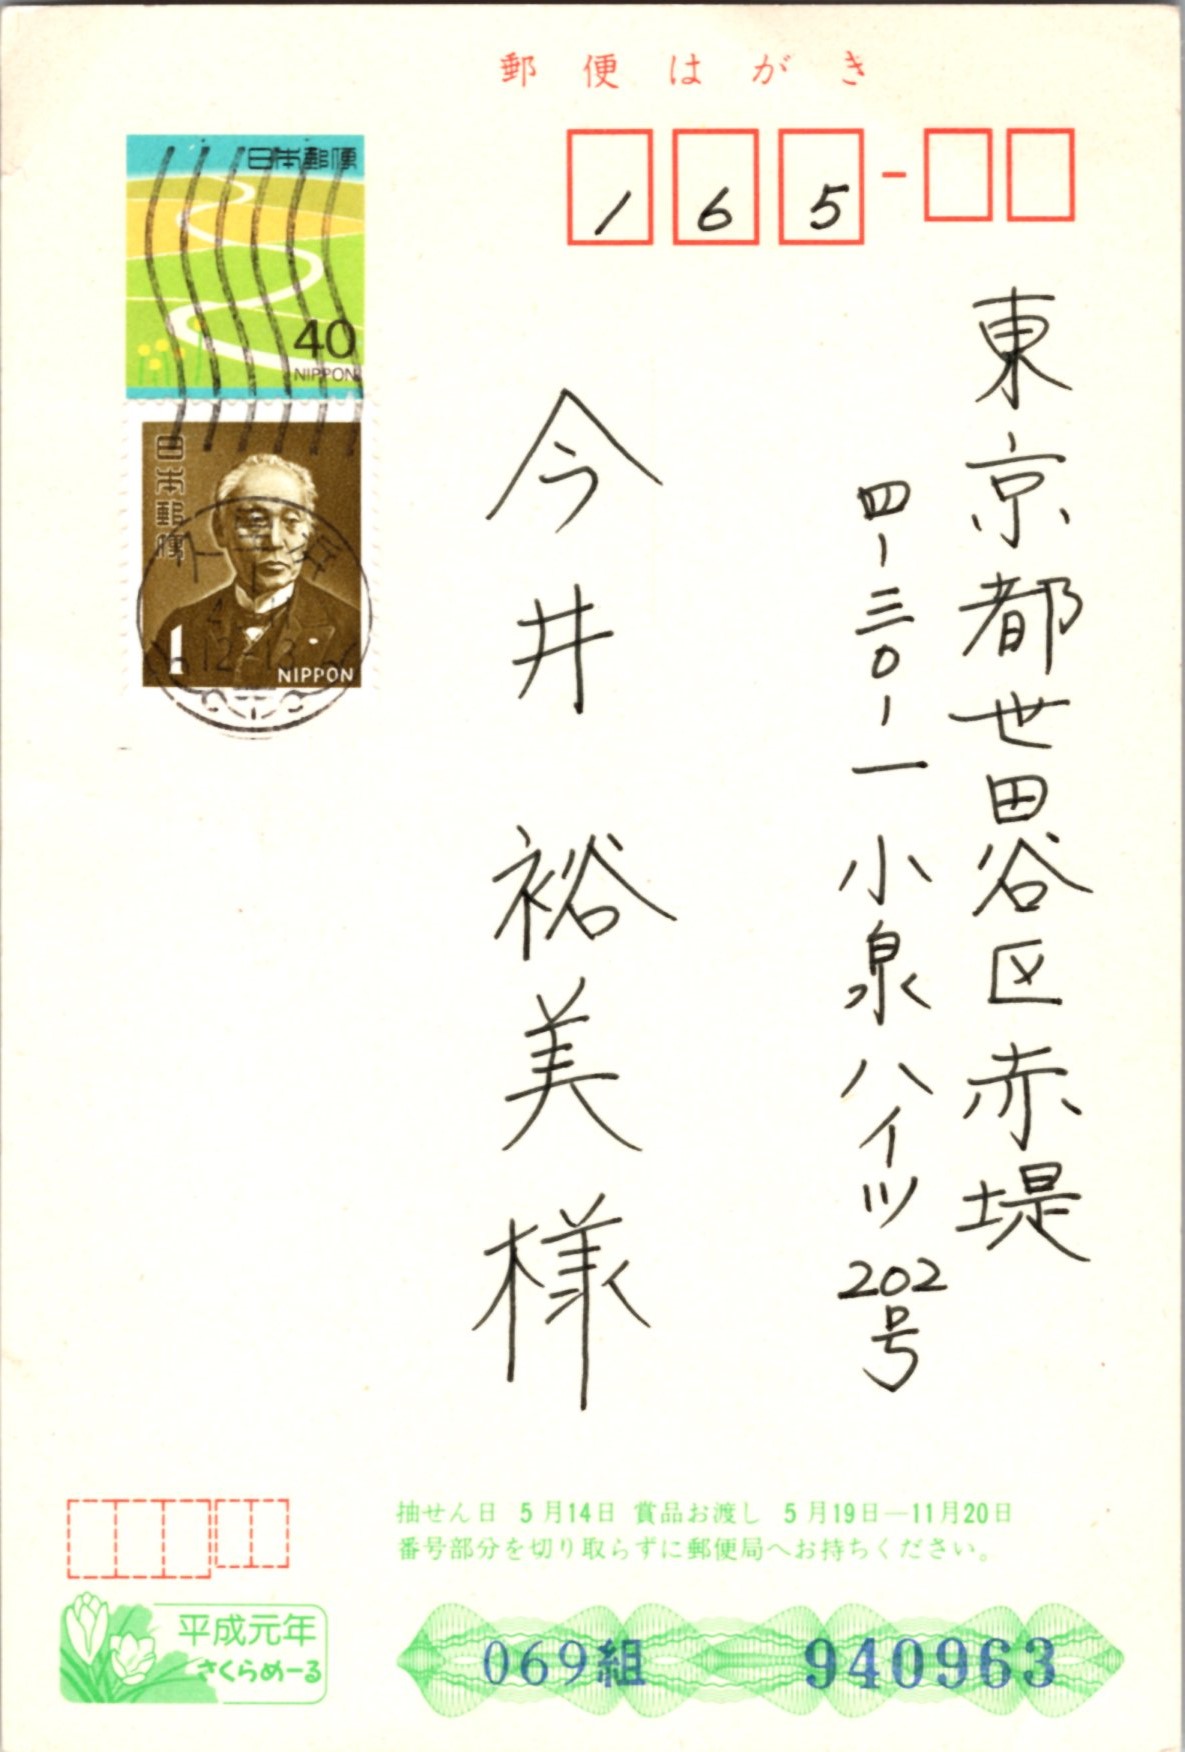 郵便はがき
165-
日本郵便
40
NIPPON
日本郵便
1
NIPPON
東京都世田谷区赤堤
四-三0-一 小泉ハイツ202号
今井 裕美 様
抽せん日 5月14日 賞品お渡し 5月19日—11月20日
番号部分を切り取らずに郵便局へお持ちください。
平成元年
さくらめーる
069組 940963